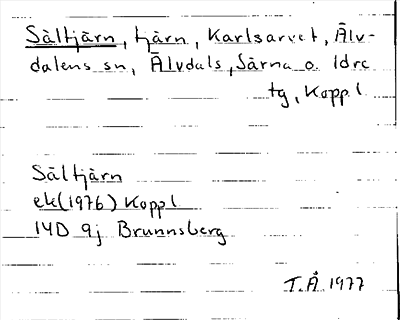 Sältjärn, tjärn, Karlsarvet, Älv-
dalens sn, Älvdals, Särna o. Idre
tg, Koppl
Sältjärn
ek(1976) Koppl
14D 9j Brunnsberg
T.Å 1977